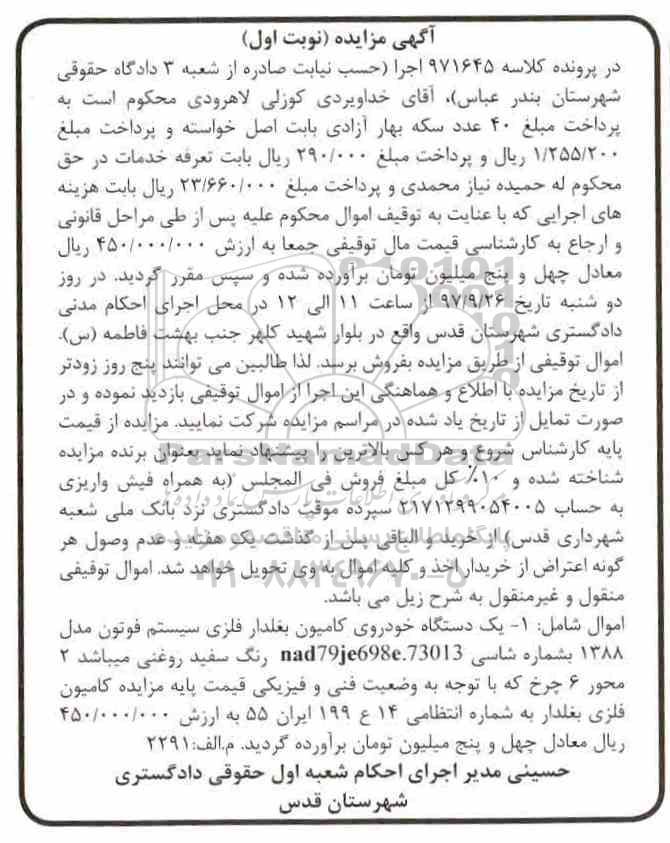 آگهی مزایده (نوبت اول)
در پرونده کلاسه ۹۷۱۶۴۵ اجرا (حسب نیابت صادره از شعبه ۳ دادگاه حقوقی
شهرستان بندر عباس)، آقای خداویردی کوزلی لاهرودی محکوم است به
پرداخت مبلغ ۴۰ عدد سکه بهار آزادی بابت اصل خواسته و پرداخت مبلغ
۱/۲۵۵/۲۰۰ ریال و پرداخت مبلغ ۲۹۰/۰۰۰ ریال بابت تعرفه خدمات در حق
محکوم له حمیده نیاز محمدی و پرداخت مبلغ ۲۳/۶۶۰/۰۰۰ ریال بابت هزینه
های اجرایی که با عنایت به توقیف اموال محکوم علیه پس از طی مراحل قانونی
و ارجاع به کارشناسی قیمت مال توقیفی جمعا به ارزش ۴۵۰/۰۰۰/۰۰۰ ریال
معادل چهل و پنج میلیون تومان برآورده شده و سپس مقرر گردید. در روز
دو شنبه تاریخ ۹۷/۹/۲۶ از ساعت ۱۱ الی ۱۲ در محل اجرای احکام مدنی
دادگستری شهرستان قدس واقع در بلوار شهید کلهر جنب بهشت فاطمه (س).
اموال توقیفی از طریق مزایده بفروش برسد. لذا طالبین می توانند پنج روز زودتر
از تاریخ مزایده با اطلاع و هماهنگی این اجرا از اموال توقیفی بازدید نموده و در
صورت تمایل از تاریخ یاد شده در مراسم مزایده شرکت نمایید. مزایده از قیمت
پایه کارشناس شروع و هر کس بالاترین را پیشنهاد نماید بعنوان برنده مزایده
شناخته شده و ۱۰٪ کل مبلغ فروش فی المجلس (به همراه فیش واریزی
به حساب ۲۱۷۱۲۹۹۰۵۴۰۰۵ سپرده موقت دادگستری نزد بانک ملی شعبه
شهرداری قدس) از خرید و الباقی پس از گذشت یک هفته و عدم وصول هر
گونه اعتراض از خریدار اخذ و کلیه اموال به وی تحویل خواهد شد. اموال توقیفی
منقول و غیرمنقول به شرح زیل می باشد.
اموال شامل: ۱- یک دستگاه خودروی کامیون بغلدار فلزی سیستم فوتون مدل
۱۳۸۸ بشماره شاسی nad79je698e.73013 رنگ سفید روغنی میباشد ۲
محور ۶ چرخ که با توجه به وضعیت فنی و فیزیکی قیمت پایه مزایده کامیون
فلزی بغلدار به شماره انتظامی ۱۴ ع ۱۹۹ ایران ۵۵ به ارزش ۴۵۰/۰۰۰/۰۰۰
ریال معادل چهل و پنج میلیون تومان برآورده گردید. م.الف:۲۲۹۱
حسینی مدیر اجرای احکام شعبه اول حقوقی دادگستری
شهرستان قدس
ParsNamadData
پایگاه اطلاع رسانی مناقصه و مزایده
۰۲۱-۸۸۳۴۹۶۷۰-۵